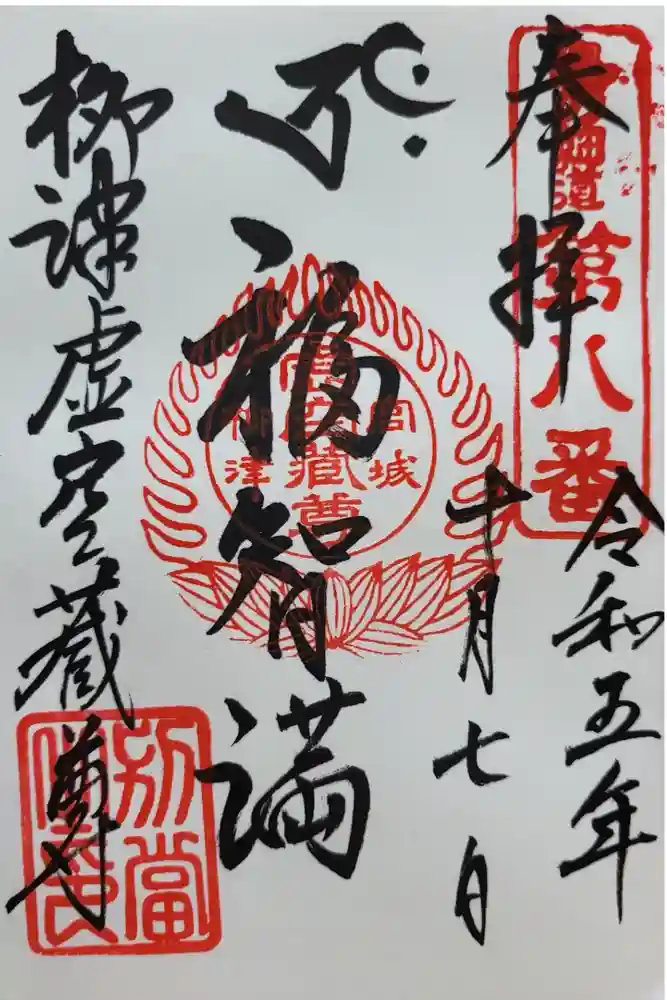 奉拝
第八番
令和五年
十月七日
福智満
虚空蔵尊
宮城
柳津
柳津虚空蔵尊
別當